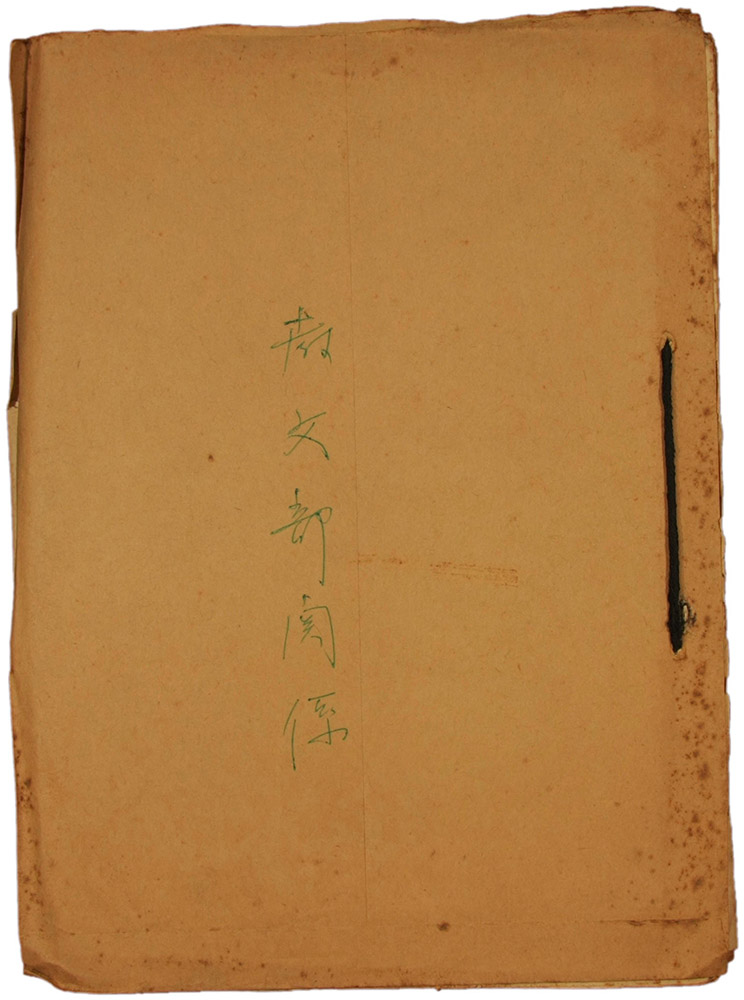 教文部関係